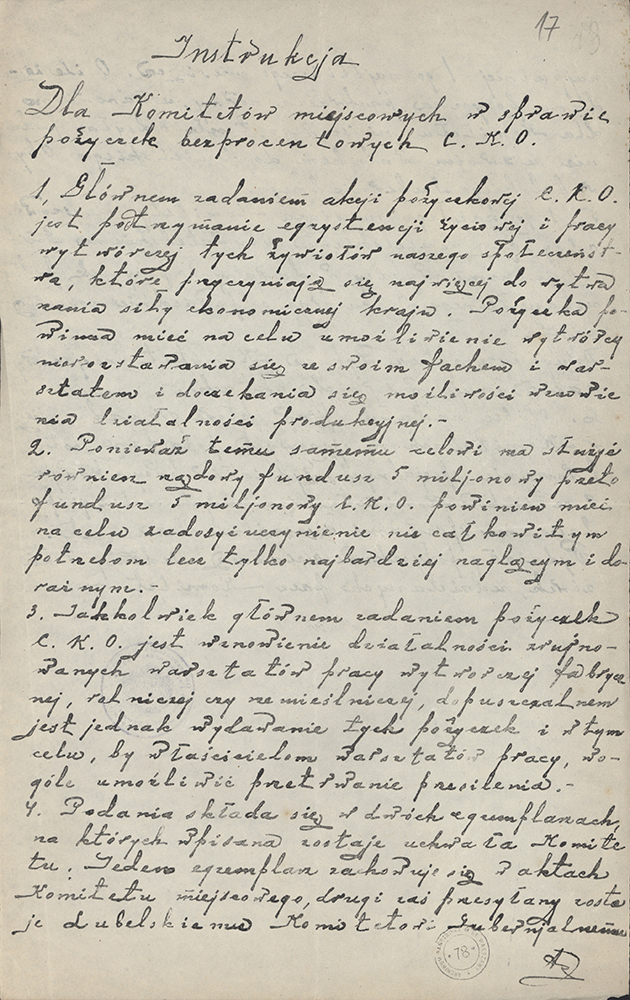 17
Instrukcja
Dla Komitetów miejscowych w sprawie
pożyczek bezprocentowych C. K. O.
1, Głównem zadaniem akcji pożyczkowej C. K. O.
jest podtrzymanie egzystencji życiowej i pracy
wytwórczej tych żywiołów naszego społeczeńst-
wa, które przyczyniają się najwięcej do wytwa
rzania siły ekonomicznej kraju. Pożyczka po-
winna mieć na celu umożliwienie wytwórcy
nierozstawania się ze swoim fachem i war-
sztatem i doczekania się możliwości wznowie
nia działalności produkcyjnej.-
2. Ponieważ temu samemu celowi ma służyć
również rządowy fundusz 5 miljonowy przeto
fundusz 5 miljonowy C. K. O. powinien mieć
na celu zadosyćuczynienie nie całkowitym
potrzebom lecz tylko najbardziej naglącym i do-
raźnym.-
3. Jakkolwiek głównem zadaniem pożyczek
C. K. O. jest wznowienie działalności zrujno-
wanych warsztatów pracy wytwórczej fabrycz
nej, rolniczej czy rzemieślniczej, dopuszczalnem
jest jednak wydawanie tych pożyczek i w tym
celu, by właścicielom warsztatów pracy, wo-
góle umożliwić przetrwanie przesilenia.-
4. Podania składa się w dwóch egzemplarzach,
na których wpisana zostaje uchwała Komite
tu. Jeden egzemplarz zachowuje się w aktach
Komitetu miejscowego, drugi zaś przesyłany zosta
je Lubelskiemu Komitetowi Gubernjalnemu
78